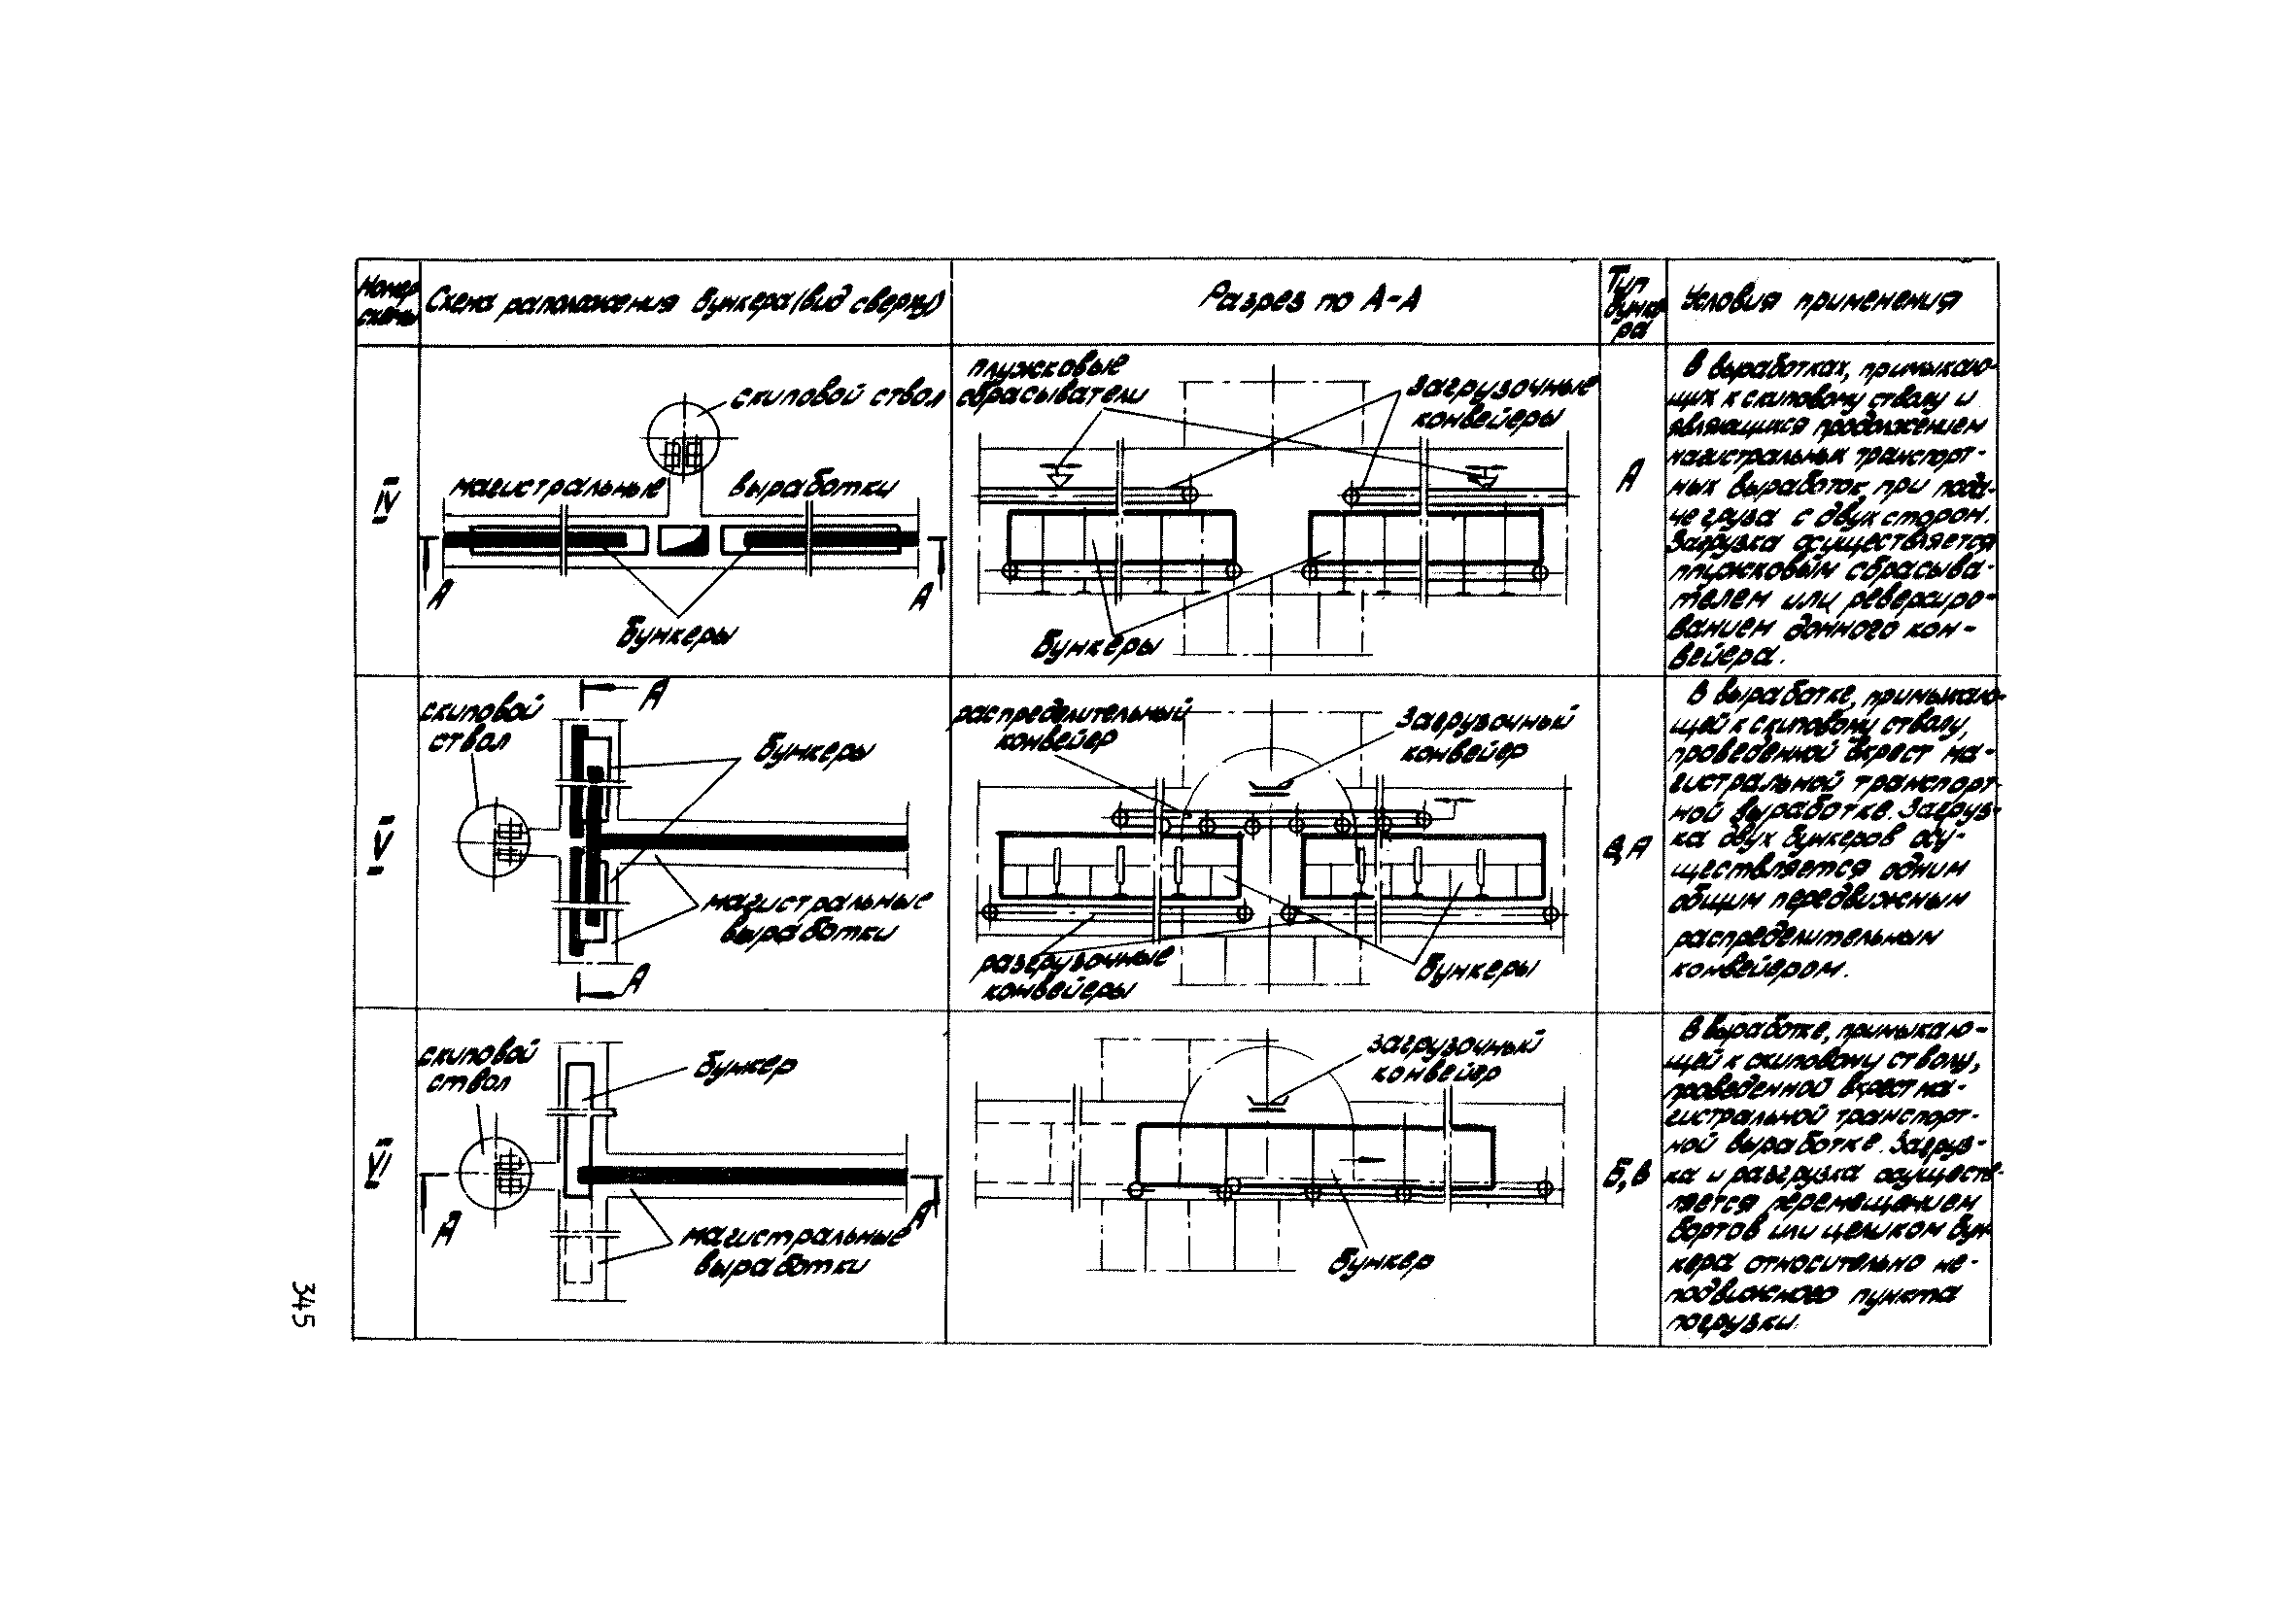 Номер
схемы
Схема раположения бункера (вид сверху)
Разрез по А-А
Тип
бунке-
ра
Условия применения
IV
скиповой ствол
магистральные
выработки
А
А
бункеры
плужковые
сбрасыватели
загрузочные
конвейеры
бункеры
А
В выработках, примыкаю-
щих к скиповому стволу и
являющихся продолжением
магистральных транспорт-
ных выработок, при пода-
че груза с двух сторон.
Загрузка осуществляется
плужковым сбрасыва-
телем или реверсиро-
ванием донного кон-
вейера.
V
скиповой
ствол
А
бункеры
магистральные
выработки
А
распределительный
конвейер
загрузочный
конвейер
разгрузочные
конвейеры
бункеры
В, А
В выработке, примыкаю-
щей к скиповому стволу,
проведенной вкрест ма-
гистральной транспорт-
ной выработке. Загруз-
ка двух бункеров осу-
ществляется одним
общим передвижным
распределительным
конвейером.
VI
скиповой
ствол
бункер
А
А
магистральные
выработки
загрузочный
конвейер
бункер
Б, В
В выработке, примыкаю-
щей к скиповому стволу,
проведенной вкрест ма-
гистральной транспорт-
ной выработке. Загруз-
ка и разгрузка осуществ-
ляется перемещением
бортов или целиком бун-
кера относительно не-
подвижного пункта
погрузки.
345